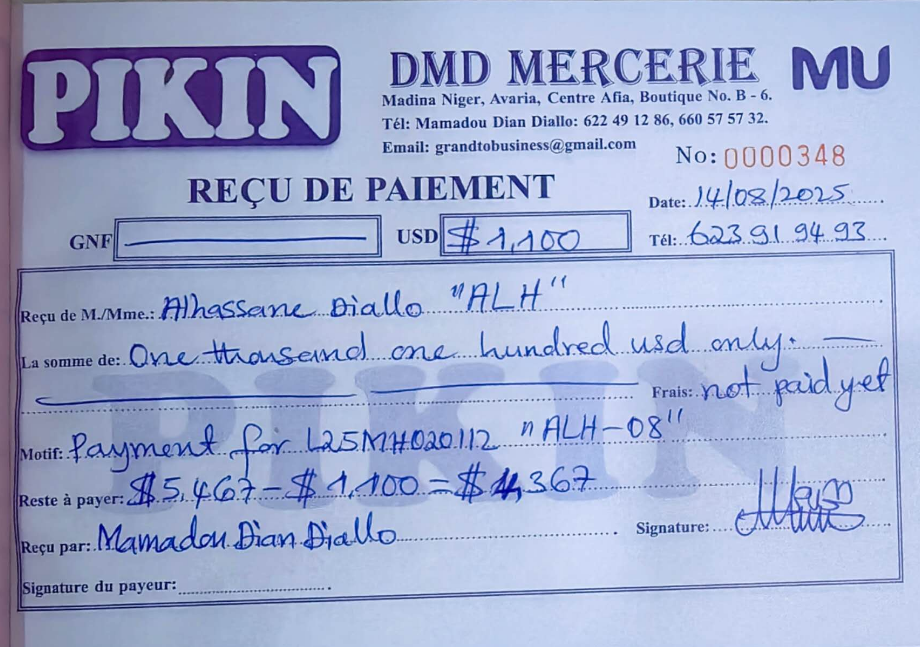 PIKIN
DMD MERCERIE MU
Madina Niger, Avaria, Centre Afia, Boutique No. B - 6.
Tél: Mamadou Dian Diallo: 622 49 12 86, 660 57 57 32.
Email: grandtobusiness@gmail.com
No: 0000348
REÇU DE PAIEMENT
Date: 14/08/2025
GNF USD $ 1,100
Tél: 623 91 94 93
Reçu de M./Mme.: Alhassane Diallo "ALH"
La somme de: One thousand one hundred usd only.
Frais: not paid yet
Motif: Payment for L25MH020112 "ALH-08"
Reste à payer: $5,467 - $ 1,100 = $ 4,367
Reçu par: Mamadou Dian Diallo Signature:
Signature du payeur:
PIKIN